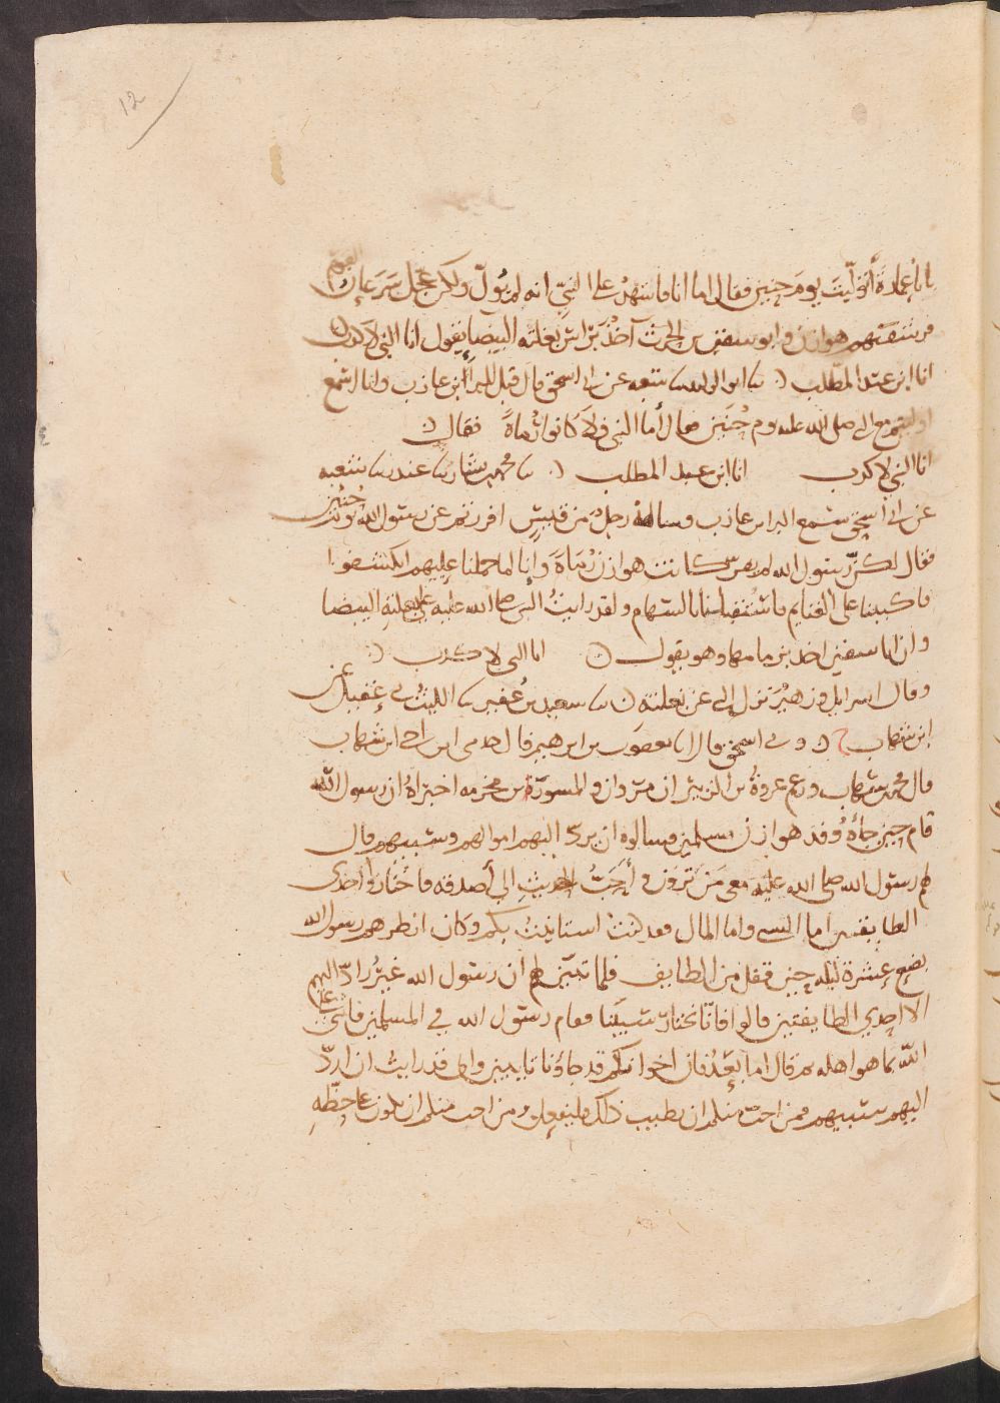 12
يا أبا عمارة أتولّيت يوم حنين فقال اما انا فاشهد على النبي انه لم يُولّ ولكن عجل سرعان القوم
فرشقتهم هوازن وابو سفين بن الحرث آخذ براس بغلته البيضا يقول انا النبي لا كذب
انا ابن عبد المطلب ○ نا ابو الوليد نا شعبه عن ابي اسحق قال قيل للبرا ابن عازب وانا اسمع
اوليتم مع النبي صلى الله عليه وسلم يوم حنين فقال أما النبي فلا كانوا رُماةً فقال ○
انا النبي لا كذب انا ابن عبد المطلب ○ نا محمد بن بشار نا غندر نا شعبه
عن ابي اسحق سمع البرا بن عازب وساله رجل من قيسٍ افررتم عن رسول الله يوم حنين
فقال لكنّ رسول الله لم يفر كانت هوازن رُماة وإنا لما حملنا عليهم انكشفوا
فاكببنا على الغنايم فاستُقبلنا بالسهام ولقد رايتُ النبي صلى الله عليه على بغلته البيضا
وان ابا سفين اخذ بزمامها وهو يقول ○ انا النبي لا كذب ○
وقال اسرايل وزهير نزل النبي عن بغلته ○ نا سعيد بن عُفير نا الليث ني عقيل عن
ابن شهاب ح ○ وني اسحق قال انا يعقوب بن ابرهيم قال حدثني ابن اخي ابن شهاب
قال محمد بن شهاب وزعم عروةُ بن الزبير ان مروان والمسورَ بن مخرمه اخبراهُ ان رسول الله
قام حين جاءهُ وفد هوازن مسلمين فسالوه ان يردّ اليهم اموالهم وسبيهم فقال
لهم رسول الله صلى الله عليه معي مَن تَرَون وأحَبُّ الحديثِ الي أصدقه فاختاروا احدى
الطايفتين اما السبي واما المال وقد كنتُ استانيتُ بكم وكان انظرهم رسول الله
بضع عشرة ليله حين قفل من الطايف فلما تبيّن لهم ان رسول الله غيرُ رادّ اليهم
الا احدي الطايفتين قالوا فانّا نختارُ سبيَنا فقام رسول الله في المسلمين فاثنى على
اللّه بما هو اهله ثم قال اما بَعدُ فان اخوانكم قد جاؤنا تايبين واني قد رايتُ ان اردّ
اليهم سبيهم فمن احبّ منكم ان يطيب ذلك فليفعل ومن احب منكم ان يكون على حظّهِ